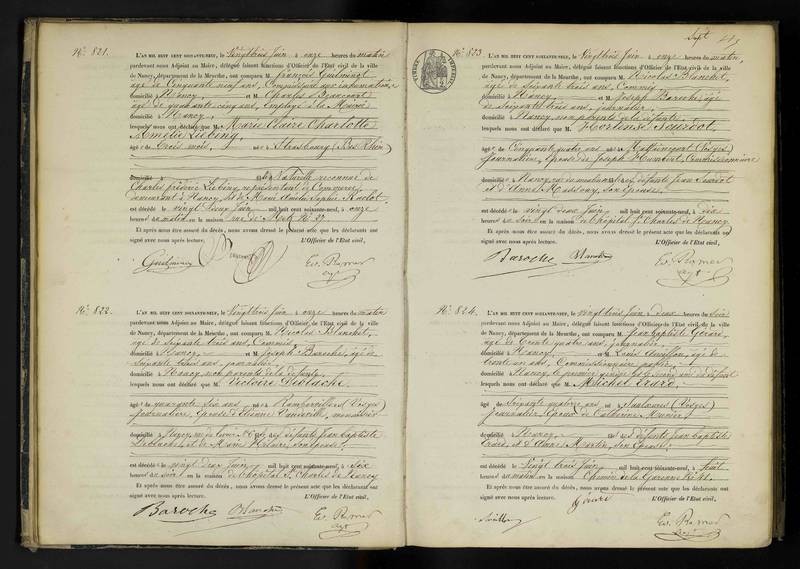 N° 821.
L'AN MIL HUIT CENT SOIXANTE-NEUF, le Vingt trois Juin à onze heures du matin
pardevant nous Adjoint au Maire, délégué faisant fonctions d'Officier de l'Etat civil de la ville
de Nancy, département de la Meurthe, ont comparu M. François Guilminot
âgé de Cinquante neuf ans,
et M. Charles Beaucourt
âgé de quarante cinq ans, Employé à la Mairie
domicilié Nancy,
lesquels nous ont déclaré que M. Marie Claire Charlotte
Amélie Liebing,
âgée de trois mois, née à Strasbourg (Bas Rhin)
domicilié à naturelle reconnue de
Charles frédéric Liebing, représentant de Commerce,
demeurant à Nancy, et de Marie Amélie Sophie
est décédée le vingt deux Juin mil huit cent soixante-neuf, à onze
heures du matin en la maison rue de Metz N° 27
Et après nous être assuré du décès, nous avons dressé le présent acte que les déclarants ont
signé avec nous après lecture. L'Officier de l'Etat civil,
N° 822.
L'AN MIL HUIT CENT SOIXANTE-NEUF, le Vingt trois Juin à onze heures du matin
pardevant nous Adjoint au Maire, délégué faisant fonctions d'Officier de l'Etat civil de la ville
de Nancy, département de la Meurthe, ont comparu M. Nicolas Blanchet,
âgé de Soixante trois ans, Commis
domicilié Nancy, et M. Joseph Baroche, âgé de
soixante trois ans, journalier,
domicilié Nancy, non parents de la défunte
lesquels nous ont déclaré que M. Victoire Deblache,
âgée de quarante six ans née à Rambervillers (Vosges)
journalière, Epouse d'Etienne
domiciliée à Nancy, défunts Jean baptiste
Deblache, et de Marie son épouse
est décédée le vingt deux Juin mil huit cent soixante-neuf, à six
heures du soir en la maison de l'hôpital St Charles de Nancy
Et après nous être assuré du décès, nous avons dressé le présent acte que les déclarants ont
signé avec nous après lecture. L'Officier de l'Etat civil,
Baroche Blanchet
Sept
N° 823
L'AN MIL HUIT CENT SOIXANTE-NEUF, le Vingt trois Juin à onze heures du matin,
pardevant nous Adjoint au Maire, délégué faisant fonctions d'Officier de l'Etat civil de la ville
de Nancy, département de la Meurthe, ont comparu M. Nicolas Blanchet,
âgé de Soixante trois ans, Commis
domicilié Nancy, et M. Joseph Baroche, âgé
de Soixante trois ans, journalier,
domicilié Nancy non parents de la défunte
lesquels nous ont déclaré que M. Hortense Jourdot,
âgée de Cinquante quatre ans née à (Vosges)
journalière, Epouse de Joseph Humbert, Commissionnaire
domiciliée à Nancy, défunts Jean Jourdot
et d'Anne son épouse,
est décédée le vingt deux Juin mil huit cent soixante-neuf, à dix
heures du soir en la maison de l'hôpital St Charles de Nancy
Et après nous être assuré du décès, nous avons dressé le présent acte que les déclarants ont
signé avec nous après lecture. L'Officier de l'Etat civil,
Baroche Blanchet
N° 824.
L'AN MIL HUIT CENT SOIXANTE-NEUF, le vingt trois Juin à deux heures du soir
pardevant nous Adjoint au Maire, délégué faisant fonctions d'Officier de l'Etat civil de la ville
de Nancy, département de la Meurthe, ont comparu M. Jean baptiste Gérard,
âgé de Trente quatre ans, journalier
domicilié Nancy, et M. Louis âgé de
Trente un ans, Commissionnaire
domicilié Nancy, le premier gendre du défunt
lesquels nous ont déclaré que M. Michel Erard,
âgé de Soixante quatorze ans né à Saulxures (Vosges)
journalier Epoux de Catherine Munier
domicilié à Nancy, défunts Jean baptiste
Erard, et d'Anne Martin, son Epouse,
est décédé le Vingt trois Juin, mil huit cent soixante-neuf, à huit
heures du matin en la maison Chemin de la Garenne N° 41.
Et après nous être assuré du décès, nous avons dressé le présent acte que les déclarants ont
signé avec nous après lecture. L'Officier de l'Etat civil,